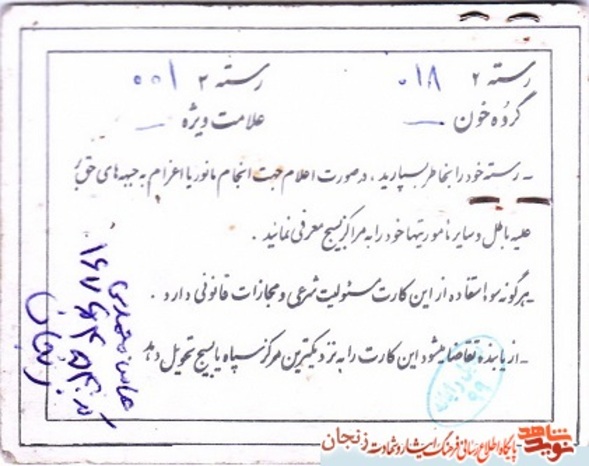 رسته ۲ ۰۱۸ رسته ۳ ۰۰۱
گروه خون — علامت ویژه —
- رسته خود را بخاطر بسپارید ، در صورت اعلام جهت انجام مانور یا اعزام به جبهه های حق
علیه باطل و سایر مأموریتها خود را به مراکز بسیج معرفی نمائید .
- هرگونه سوء استفاده از این کارت مسئولیت شرعی و مجازات قانونی دارد .
- از یابنده تقاضا میشود این کارت را به نزدیکترین مرکز سپاه یا بسیج تحویل دهد
زنجان
نوید شاهد
پایگاه اطلاع رسانی فرهنگ ایثار و شهادت زنجان